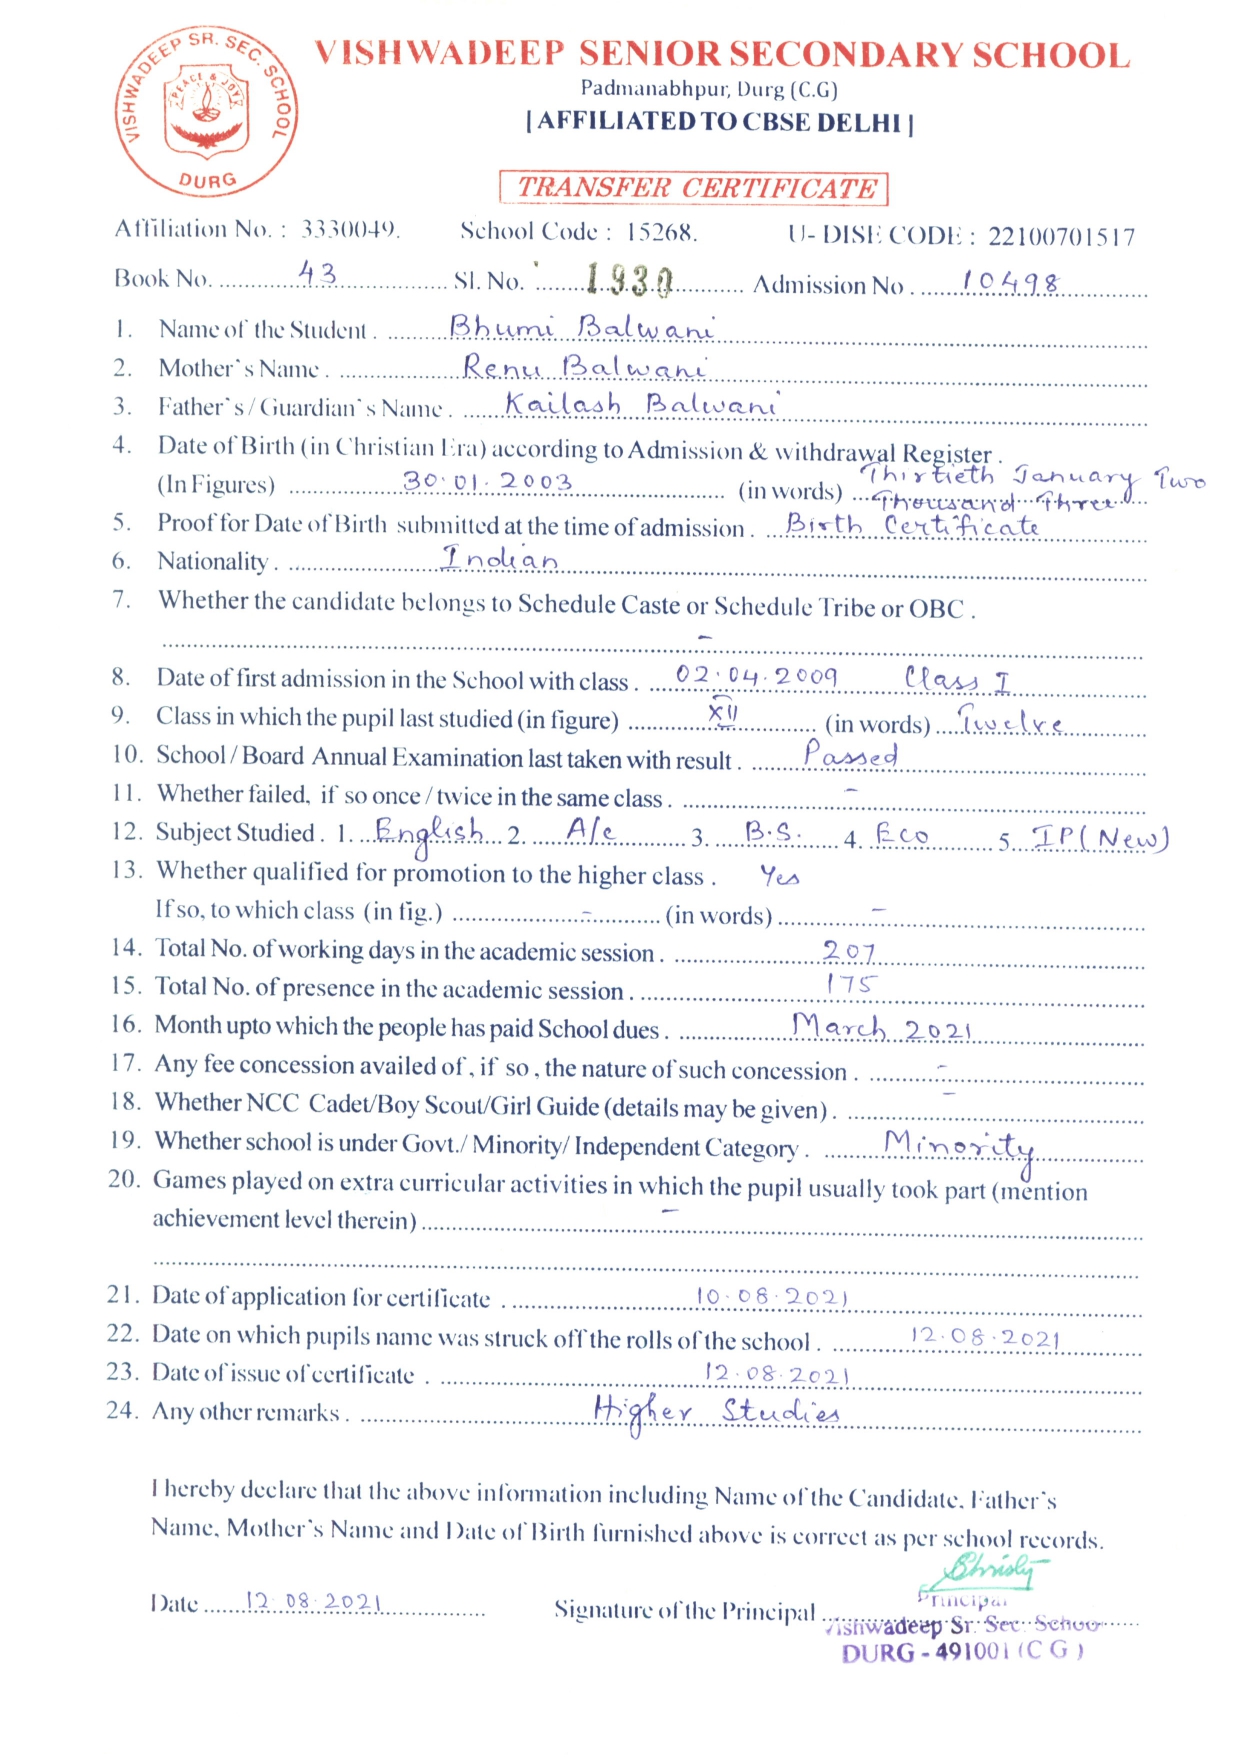 VISHWADEEP SR. SEC. SCHOOL
PEACE & JOY
DURG
VISHWADEEP SENIOR SECONDARY SCHOOL
Padmanabhpur, Durg (C.G)
[AFFILIATED TO CBSE DELHI]
TRANSFER CERTIFICATE
Affiliation No. : 3330049. School Code : 15268. U- DISE CODE : 22100701517
Book No. 43 Sl. No. 1930 Admission No. 10498
1. Name of the Student. Bhumi Balwani
2. Mother's Name. Renu Balwani
3. Father's/Guardian's Name. Kailash Balwani
4. Date of Birth (in Christian Era) according to Admission & withdrawal Register.
(In Figures) 30.01.2003 (in words) Thirtieth January Two
Thousand Three
5. Proof for Date of Birth submitted at the time of admission. Birth Certificate
6. Nationality. Indian
7. Whether the candidate belongs to Schedule Caste or Schedule Tribe or OBC.
-
8. Date of first admission in the School with class. 02.04.2009 Class I
9. Class in which the pupil last studied (in figure) XII (in words) Twelve
10. School/Board Annual Examination last taken with result. Passed
11. Whether failed, if so once/twice in the same class. -
12. Subject Studied. 1. English 2. A/c 3. B.S. 4. Eco 5. IP (New)
13. Whether qualified for promotion to the higher class. Yes
If so, to which class (in fig.) - (in words) -
14. Total No. of working days in the academic session. 207
15. Total No. of presence in the academic session. 175
16. Month upto which the people has paid School dues. March 2021
17. Any fee concession availed of, if so, the nature of such concession. -
18. Whether NCC Cadet/Boy Scout/Girl Guide (details may be given). -
19. Whether school is under Govt./ Minority/ Independent Category. Minority
20. Games played on extra curricular activities in which the pupil usually took part (mention
achievement level therein) -
21. Date of application for certificate. 10.08.2021
22. Date on which pupils name was struck off the rolls of the school. 12.08.2021
23. Date of issue of certificate. 12.08.2021
24. Any other remarks. Higher Studies
I hereby declare that the above information including Name of the Candidate, Father's
Name, Mother's Name and Date of Birth furnished above is correct as per school records.
Christy
Date 12.08.2021 Signature of the Principal
Principal
Vishwadeep Sr. Sec. School
DURG - 491001 (C G)